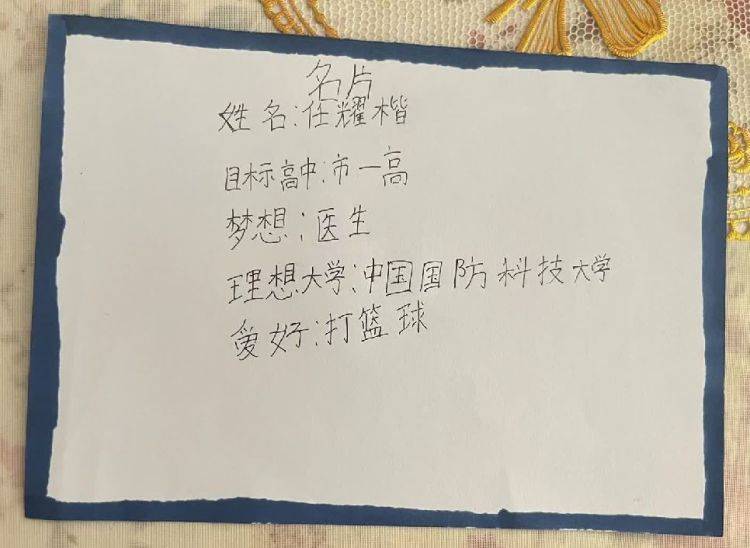 名片
姓名:任耀楷
目标高中:市一高
梦想:医生
理想大学:中国国防科技大学
爱好:打篮球